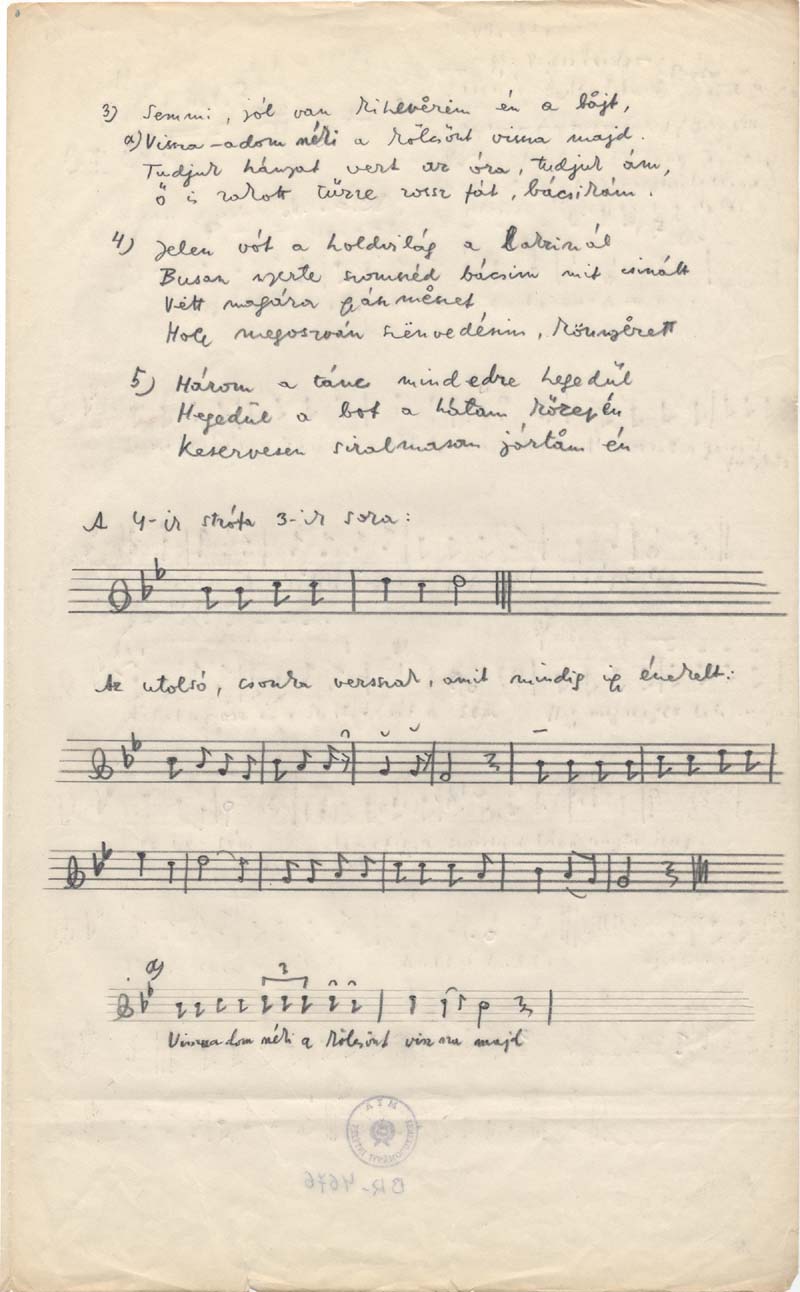 3) Semmi, jól van kihevêrêm én a båjt,
a) Vissza-adom néki a kölcsönt vissza majd.
Tudjuk hányat vert az óra, tudjuk ám,
ő is rakott tűzre rossz fát, bácsikám.
4) Jelen vót a holdvilág a Latrinál
Busan nyerte szomszéd bácsim mit csinált
Vétt magára
Hogy megosszván szënvedésim, könnyêrett
5) Három a tánc mindedre hegedül
Hegedül a bot a hátam közepén
Keservesen siralmasan jårtåm én
A 4-ik strófa 3-ik sora:
Az utolsó, csonka versszak, amit mindig így énekelt:
a)
3
Visszaadom néki a kölcsönt vissza majd
BR-4676